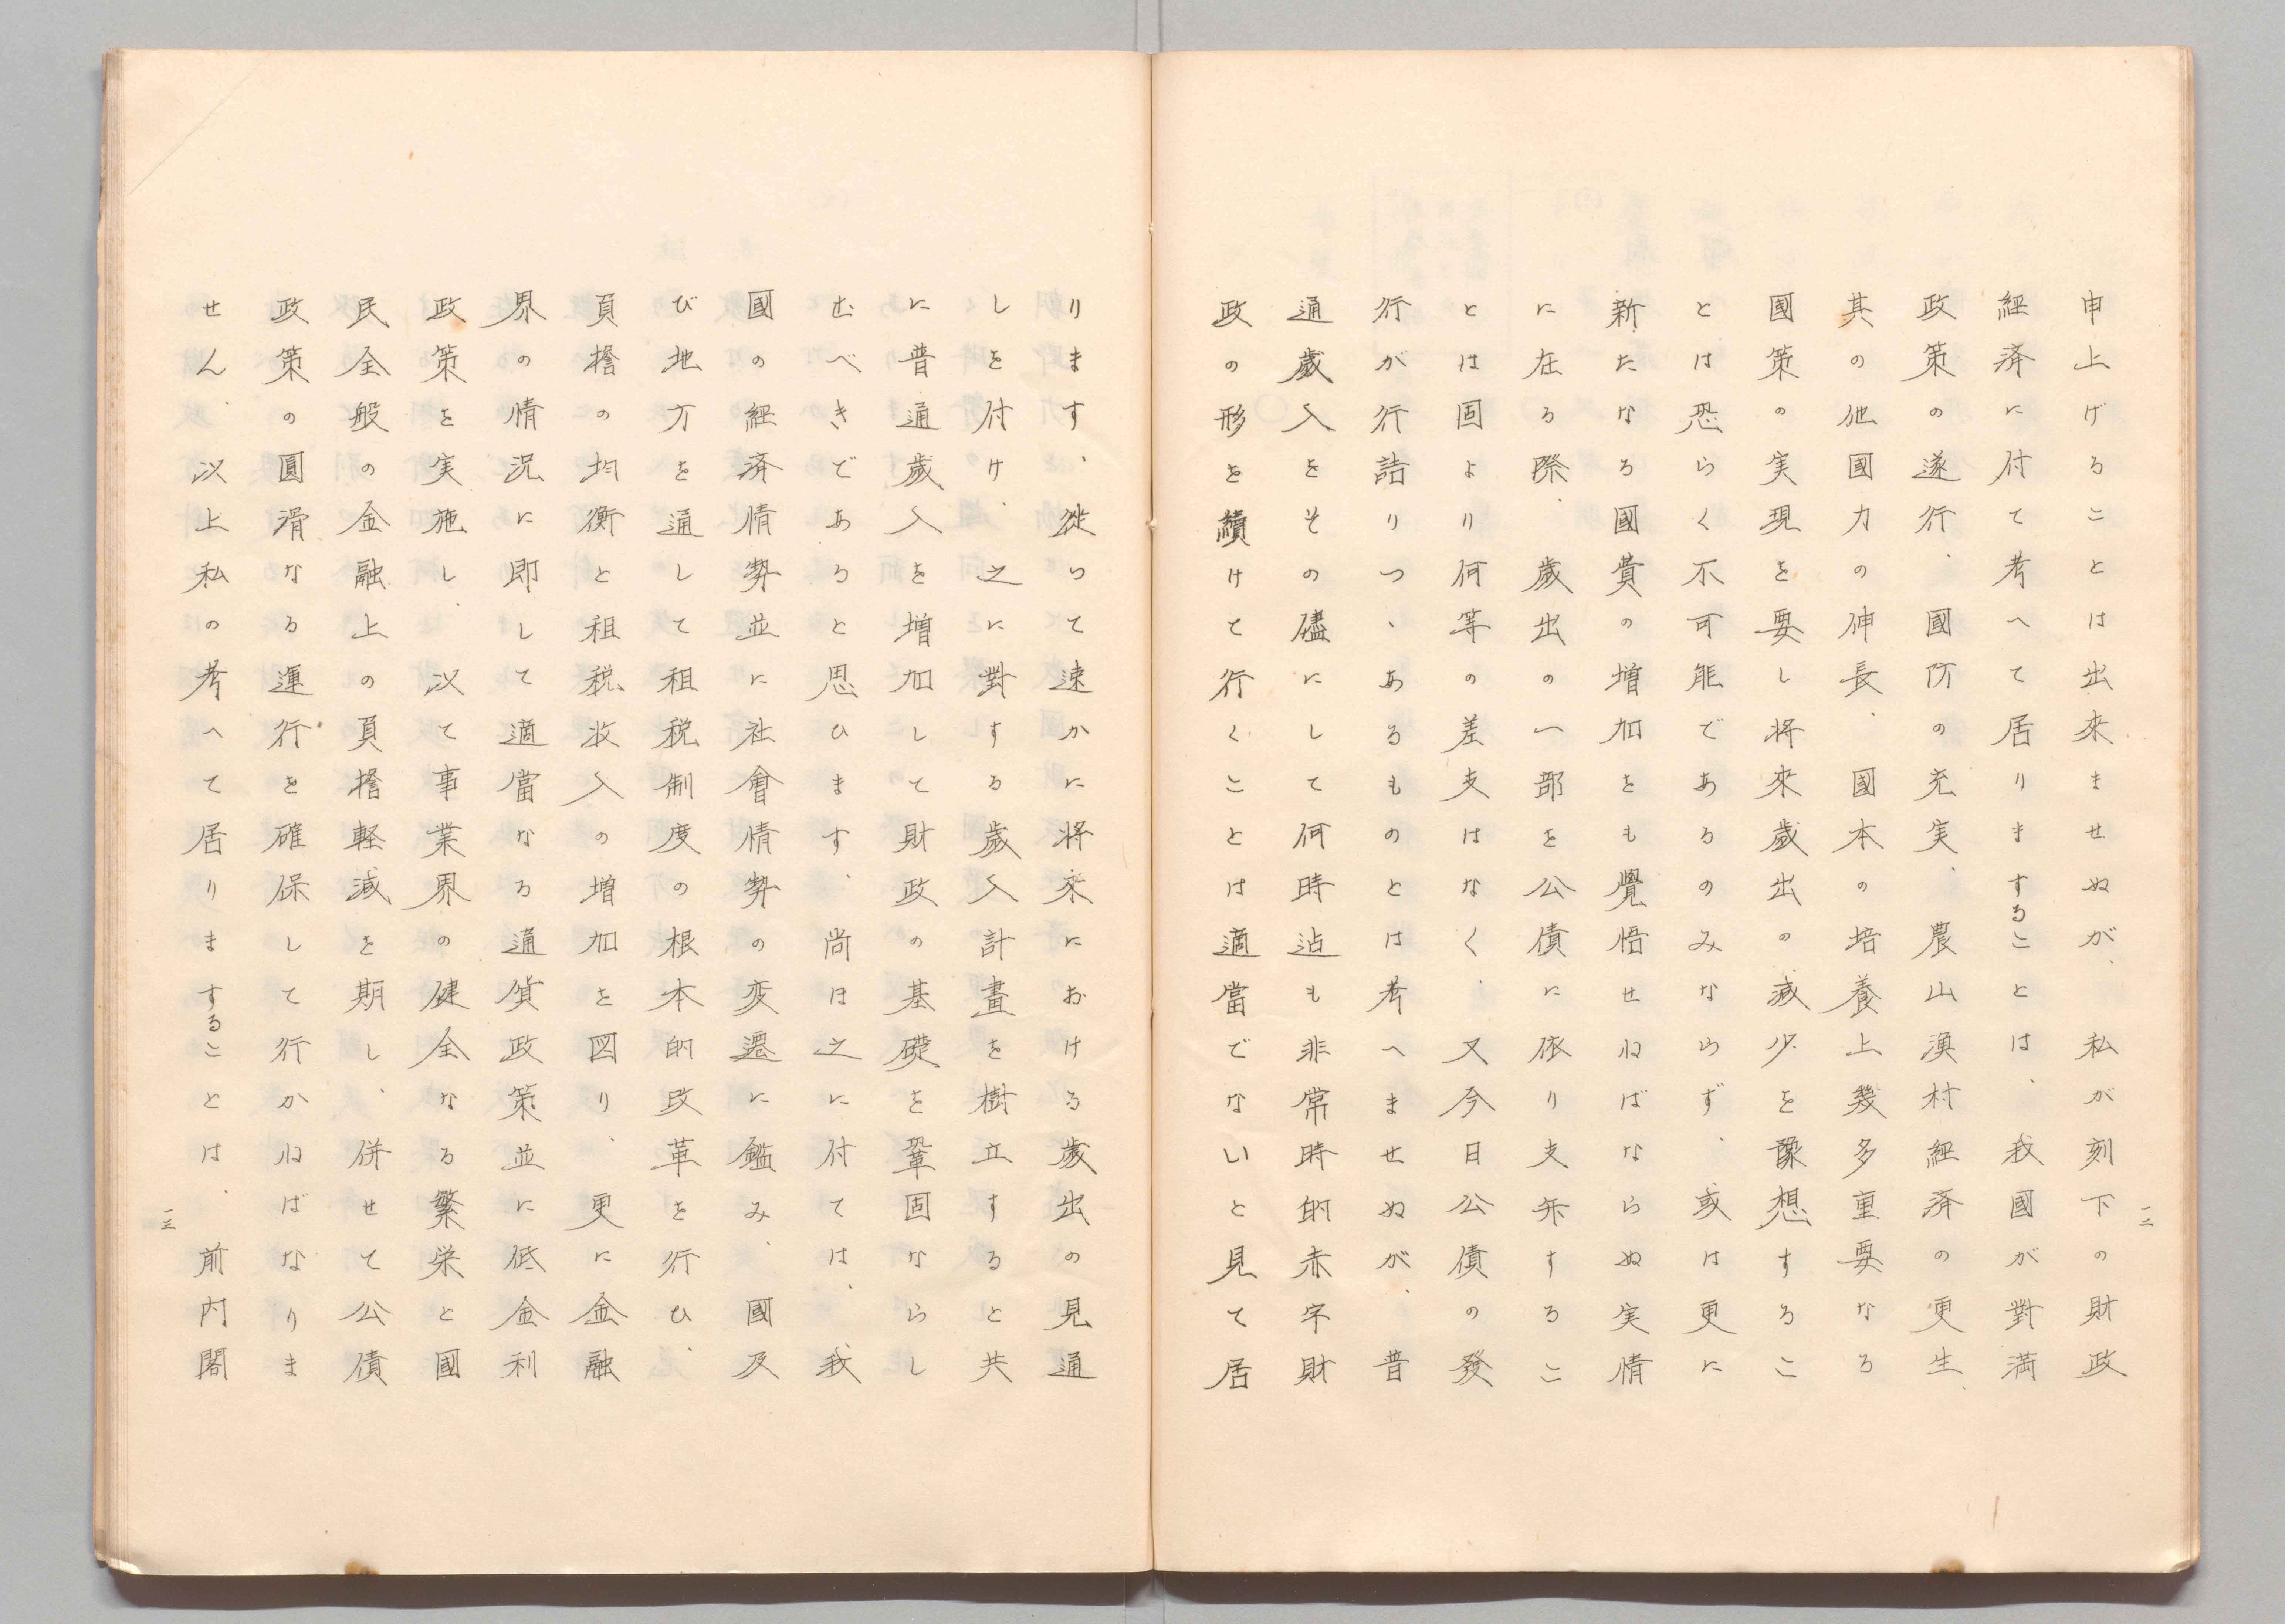 申上げることは出来ませぬが、私が刻下の財政
経済に付て考へて居りますることは、我國が對満
政策の遂行、國防の充実、農山漁村経済の更生、
其の他國力の伸長、國本の培養上幾多重要なる
國策の実現を要し将來歳出の減少を豫想するこ
とは恐らく不可能であるのみならず、或は更に
新たなる國費の増加をも覺悟せねばならぬ実情
に在る際、歳出の一部を公債に依り支弁するこ
とは固より何等の差支はなく、又今日公債の發
行が行詰りつゝあるものとは考へませぬが、普
通歳入をその儘にして何時迠も非常時的赤字財
政の形を續けて行くことは適當でないと見て居
一二
ります、従つて速かに将來における歳出の見通
しを付け、之に對する歳入計畫を樹立すると共
に普通歳入を増加して財政の基礎を鞏固ならし
むべきであると思ひます、尚ほ之に付ては、我
國の経済情勢並に社會情勢の変遷に鑑み、國及
び地方を通して租税制度の根本的改革を行ひ、
負擔の均衡と租税收入の増加を図り、更に金融
界の情況に即して適當なる通貨政策並に低金利
政策を実施し、以て事業界の健全なる繁栄と國
民全般の金融上の負擔軽減を期し、併せて公債
政策の圓滑なる運行を確保して行かねばなりま
せん、以上私の考へて居りますることは、前内閣
一三